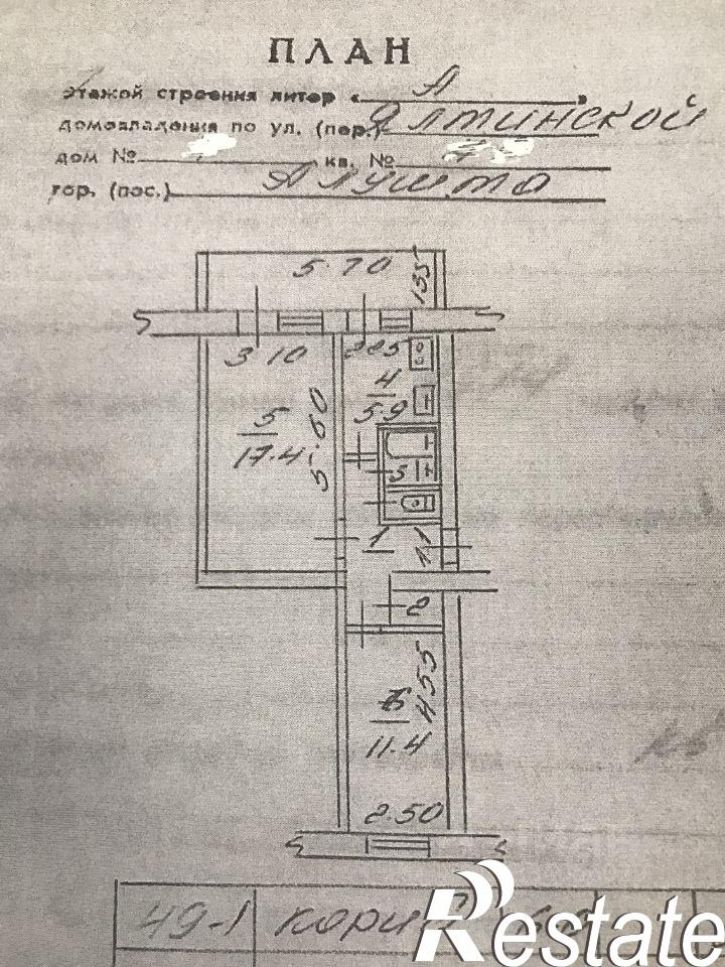 ПЛАН
этажой строения литер «А»
домовладения по ул. (пер.) Ялтинской
дом № кв. №
гор. (пос.) Алушта
5.70
135
3 10
4
5.9
5
17.4
5.60
3
1
1.1
2
6
11.4
4.55
2.50
49-1
Restate